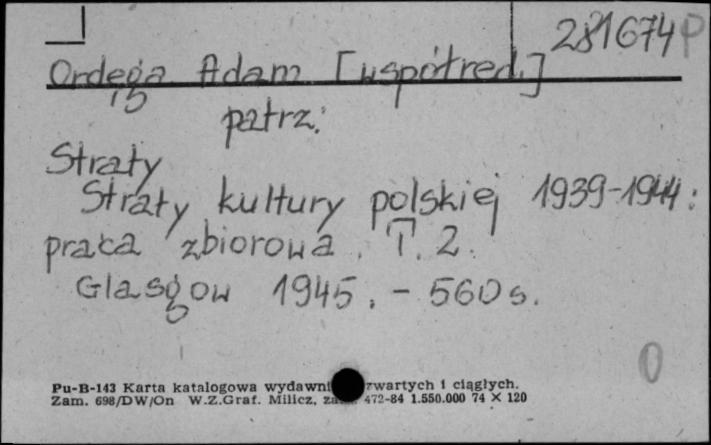 281674 P
Ordęga Adam [współred.]
patrz:
Straty
Straty kultury polskiej 1939-1944:
praca zbiorowa. T. 2.
Glasgow 1945. - 560 s.
0
Pu-B-143 Karta katalogowa wydawni zwartych i ciągłych.
Zam. 698/DW/On W.Z.Graf. Milicz, 472-84 1.550.000 74 X 120